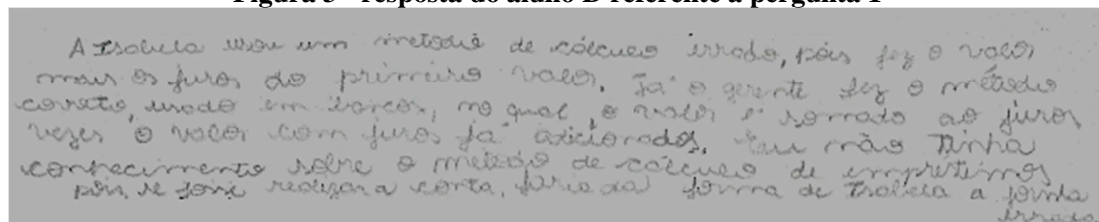 Figura 3 - resposta do aluno D referente à pergunta 1
A Isabela usou um metodo de cálculo errado, pois fez o valor
mais os juros do primeiro valor. Já o gerente fez o método
correto, usado em bancos, no qual, o valor é somado ao juros
vezes o valor com juros já adicionados. Eu não tinha
conhecimento sobre o método de cálculo de empréstimos
pois, se fosse realizar a conta, faria da forma de Isabela a forma
errada